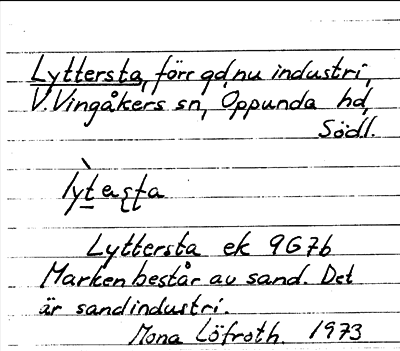 Lyttersta, förr gd, nu industri,
V. Vingåkers sn, Oppunda hd,
Södl.
Lyttersta ek 9G7b
Marken består av sand. Det
är sandindustri.
Mona Löfroth. 1973